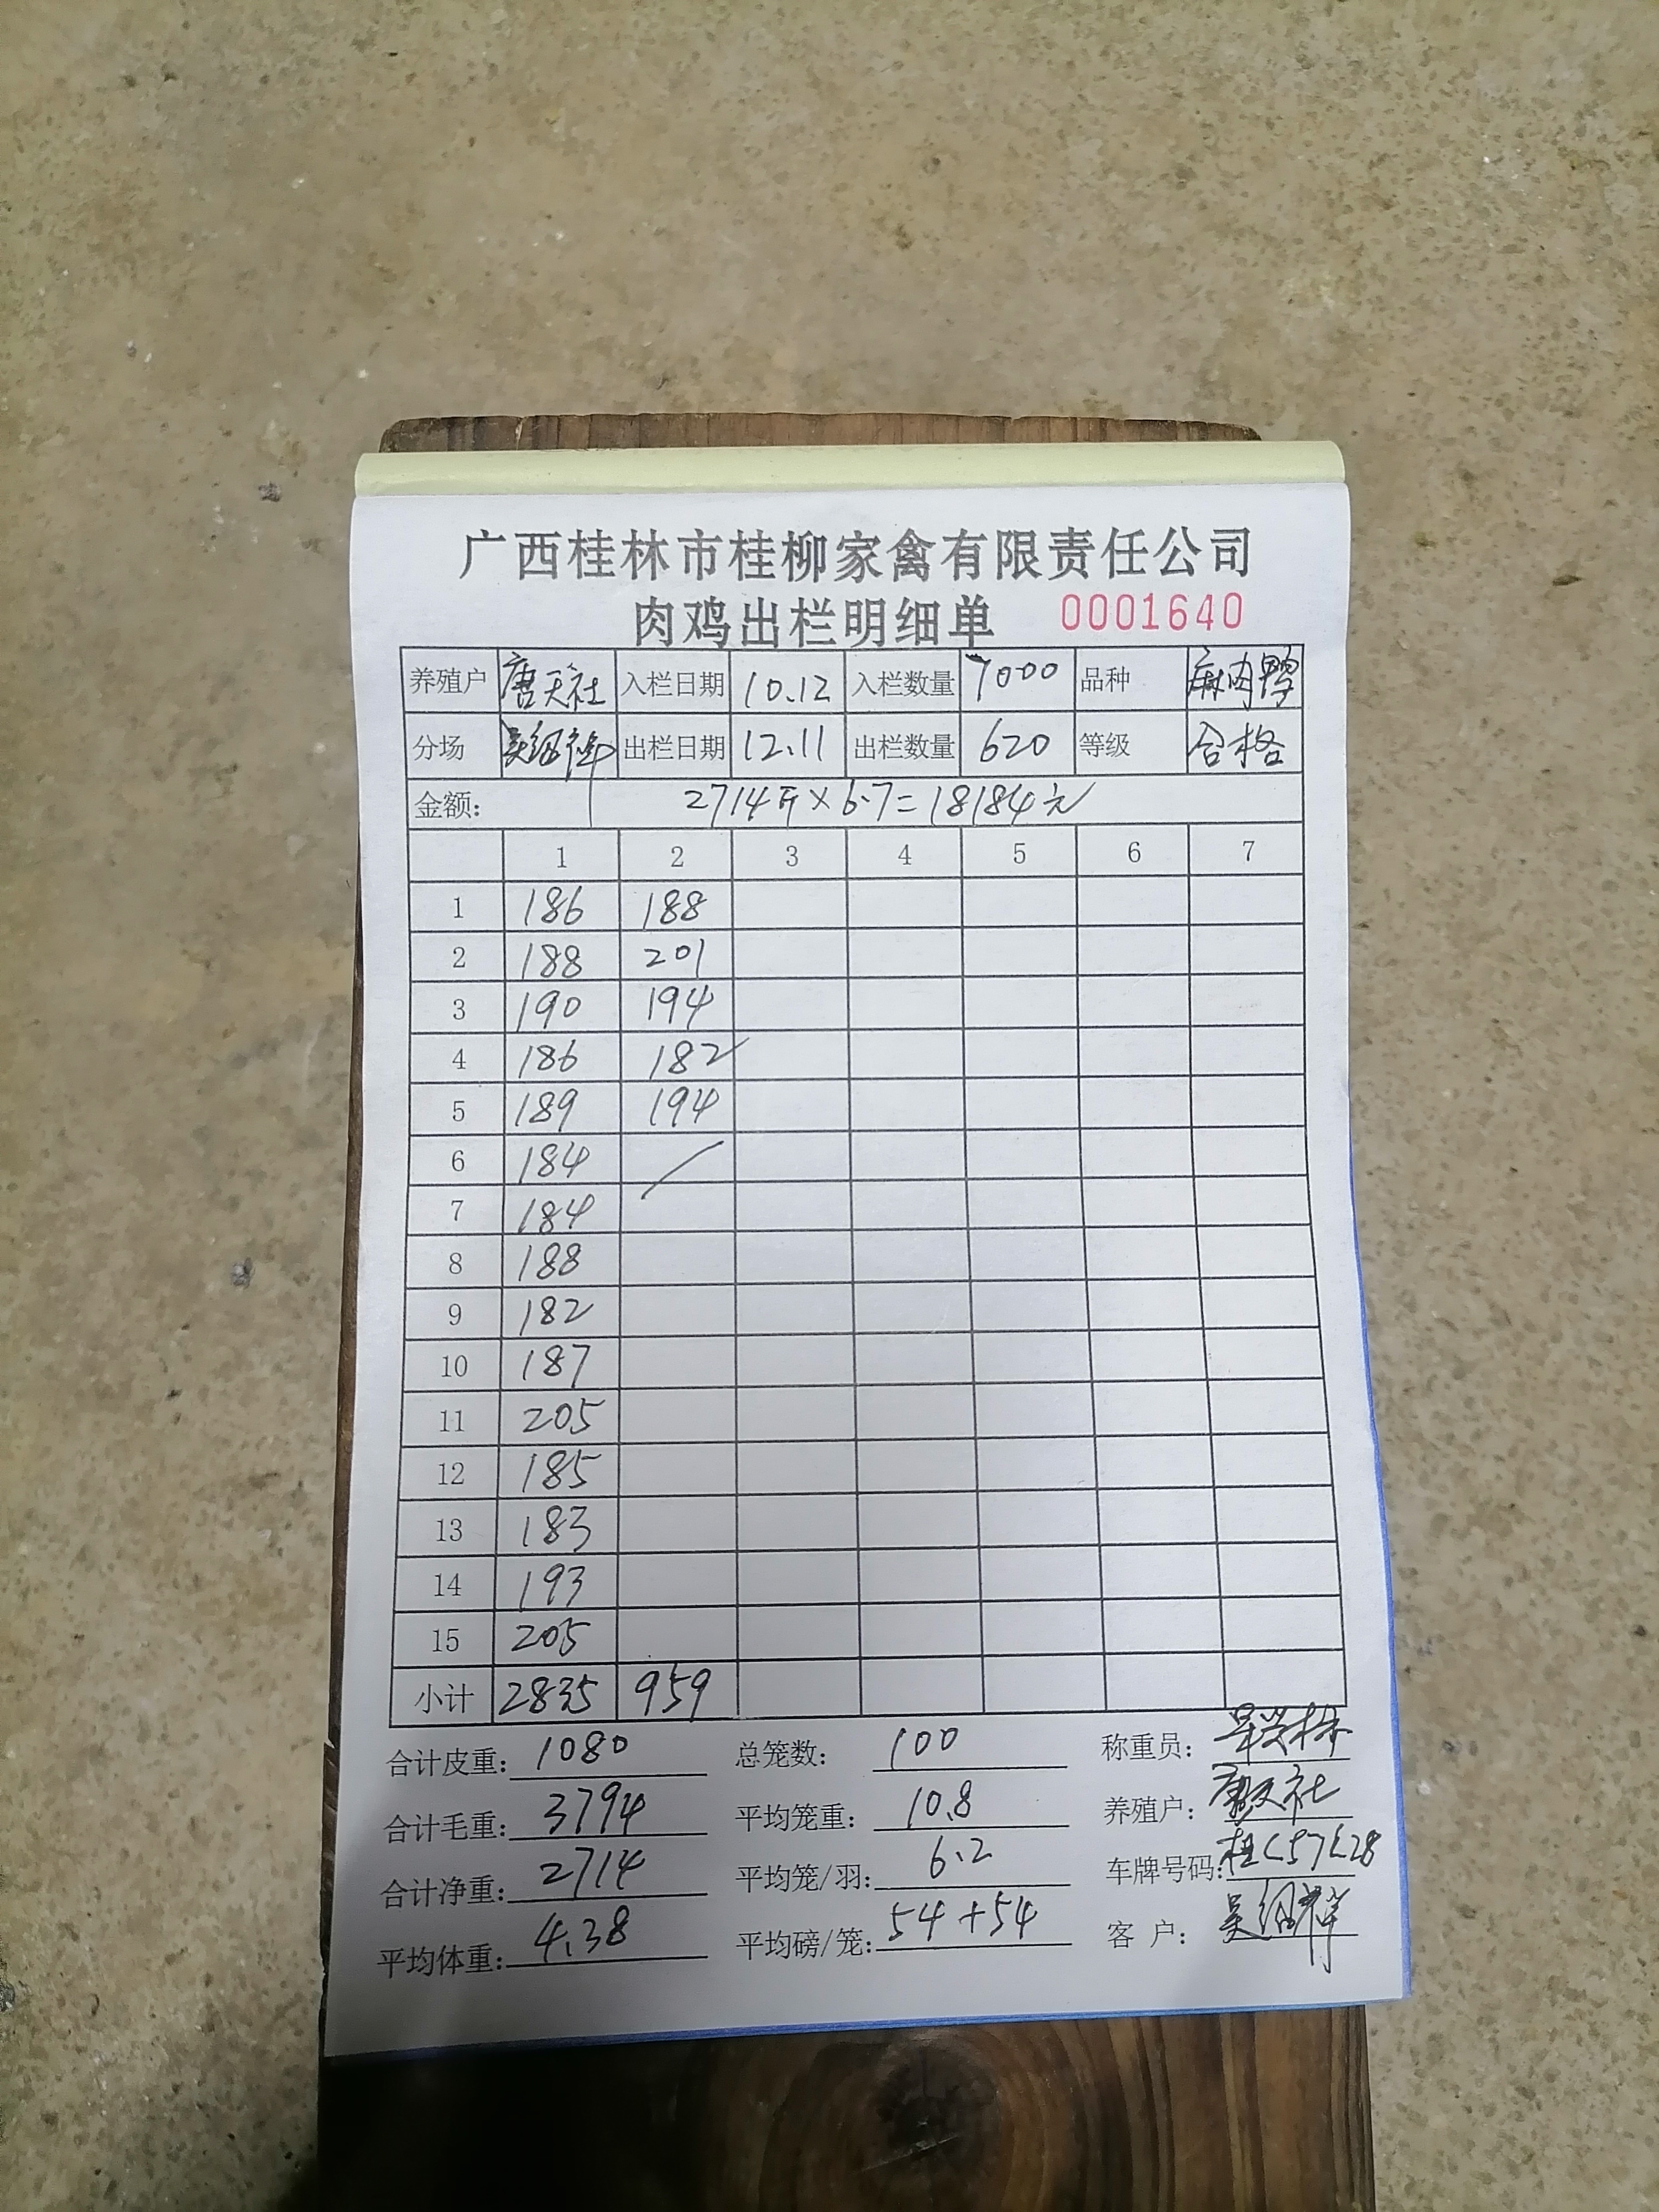 广西桂林市桂柳家禽有限责任公司
肉鸡出栏明细单 0001640
养殖户 唐天社 入栏日期 10.12 入栏数量 7000 品种 麻肉鸭
分场 出栏日期 12.11 出栏数量 620 等级 合格
金额: 2714斤×6.7=18184元
1 2 3 4 5 6 7
1 186 188
2 188 201
3 190 194
4 186 182
5 189 194
6 184
7 184
8 188
9 182
10 187
11 205
12 185
13 183
14 193
15 205
小计 2835 959
合计皮重: 1080 总笼数: 100 称重员:
合计毛重: 3794 平均笼重: 10.8 养殖户: 唐天社
合计净重: 2714 平均笼/羽: 6.2 车牌号码:
平均体重: 4.38 平均磅/笼: 54+54 客 户: